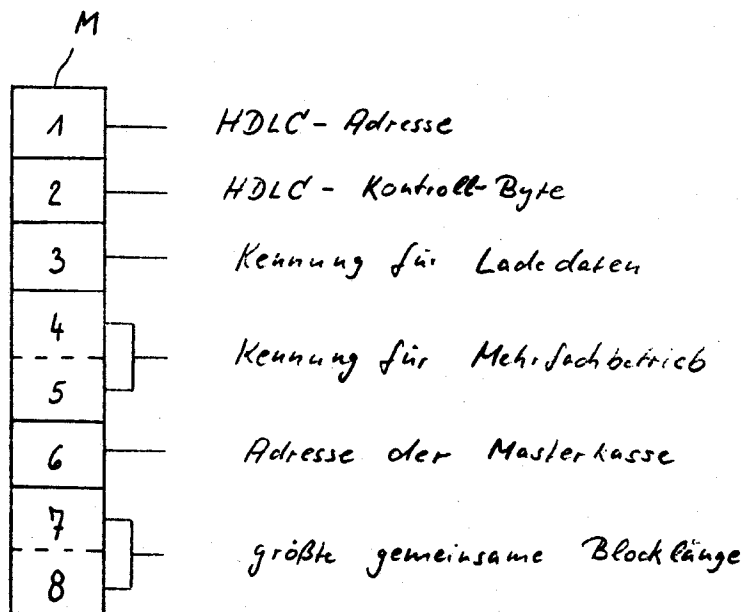 M
1 HDLC-Adresse
2 HDLC-Kontroll-Byte
3 Kennung für Ladedaten
4
Kennung für Mehrfachbetrieb
5
6 Adresse der Masterkasse
7
größte gemeinsame Blocklänge
8